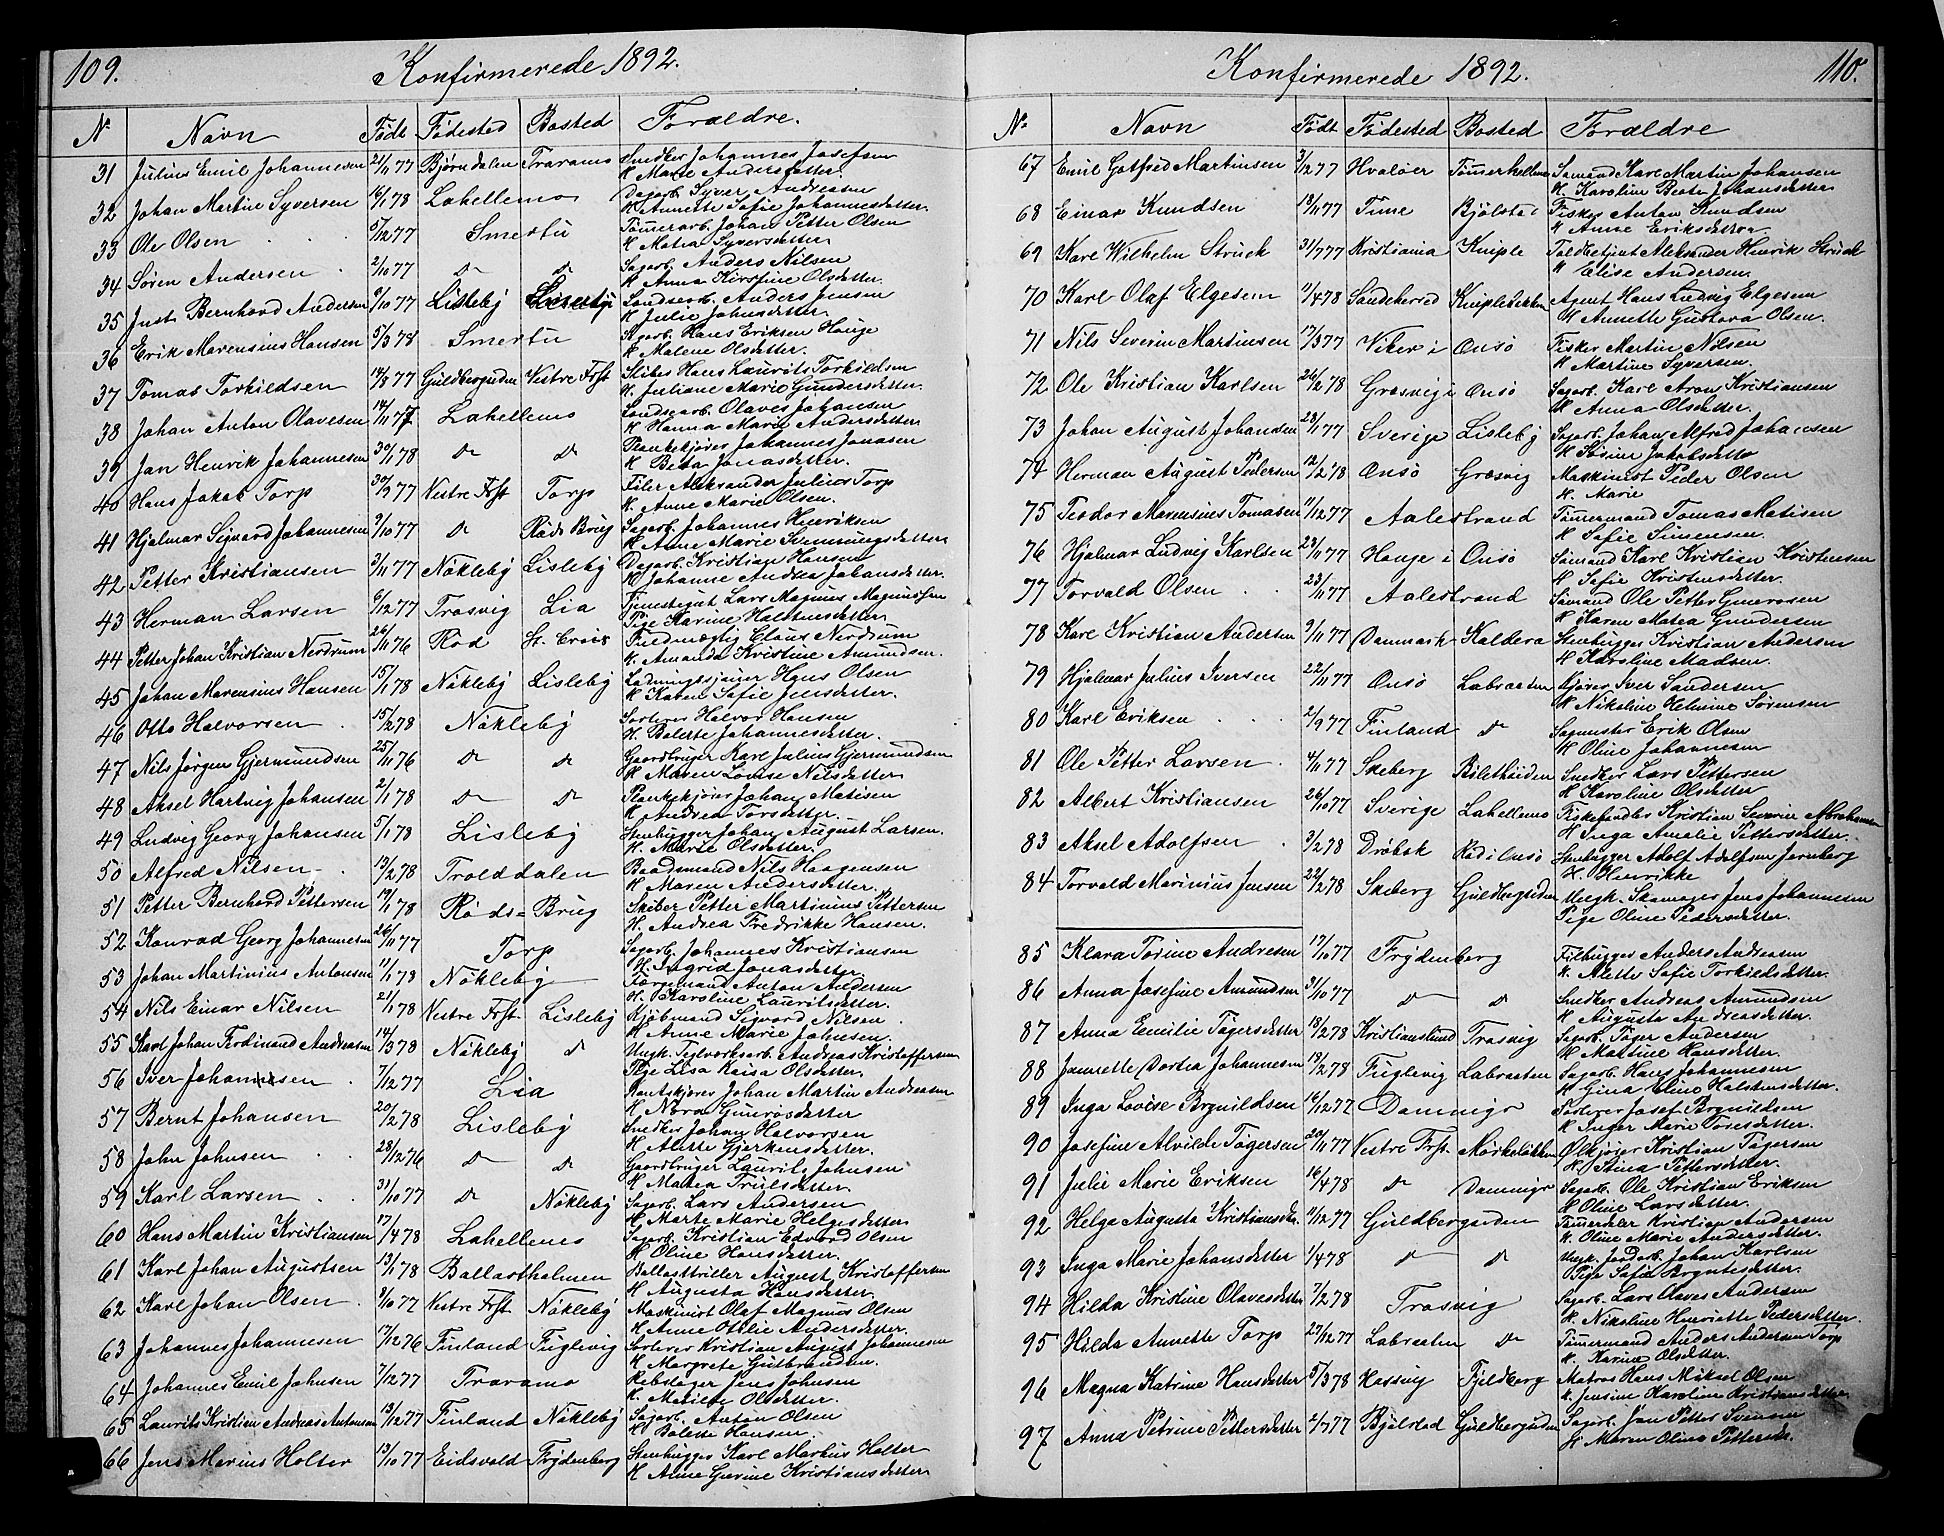 109. Konfirmerede 1892.
No Navn Født Fødested Bosted Forældre.
31 Julius Emil Johannesen 21/11 77 Bjørndalen Traramo Snedker Johannes Josefsen
K Marie Andersdatter.
32 Johan Martin Syversen 16/1 78 Lahellemo Dagarb. Syver Andreasen
K Annette Sofie Johannesdatter.
33 Ole Olsen 5/12 77 Smertu Tømerarb. Johan Petter Olsen
K Matea Syversdatter
34 Søren Andersen 2/10 77 do do Sagarb. Anders Nilsen
K Anna Kirstine Olsdatter.
35 Just Bernhard Andersen 9/10 77 Lisleby Smertu Landsearb. Anders Jensen
K Julie Johnsdatter.
36 Erik Marensius Hansen 5/3 78 Smertu Sagarb. Hans Eriksen Hauge
K Malene Olsdatter.
37 Tomas Torkildsen 14/8 77 Guldbergseden Vestre Frst Sliber Hans Laurits Torkildsen
K. Juliane Marie Gundersdatter.
38 Johan Anton Olavesen 14/11 77 Lahellemo Landsearb. Olaves Johansen
K Hanna Marie Andersdatter
39 Jan Henrik Johannesen 30/1 78 do do Plankekjører Johannes Jonasen
K Beta Jonasdatter.
40 Hans Jakob Torp 30/9 77 Vestre Frst Torp Filer Aleksander Julius Torp
K. Anne Marie Olsen.
41 Hjalmar Sigvard Johannesen 9/10 77 do Røds Brug Sagarb. Johannes Henriksen
K Anne Marie Svenningsdatter
42 Petter Kristiansen 3/11 77 Nøkleby Lisleby Dagarb. Kristian Hansen
K Johanne Andrea Johansdatter.
43 Herman Larsen 6/12 77 Trosvig Lia Tjenestegut Lars Magnus Magnussen
Pige Karine Halvorsdatter
44 Petter Johan Kristian Nordrum 26/11 76 Rød St. Croix Fuldmægtig Claus Nordrum
K. Amanda Kristine Amundsen.
45 Johan Marensius Hansen 15/1 78 Nøkleby Lisleby Ladningssjauer Hans Olsen
K Karen Sofie Jensdatter.
46 Otto Halvorsen 15/2 78 Nøkleby Sorterer Halvor Hansen
K. Bolette Johannesdatter.
47 Nils Jørgen Gjermundsen 25/11 76 do do Gaardbruger Karl Julius Gjermundsen
K Maren Lovise Nilsdatter
48 Aksel Hartvig Johansen 2/1 78 do do Plankekjører Johan Matisen
K Andrea Torsdatter.
49 Ludvig Georg Johansen 5/1 78 Lisleby Stenhugger Johan August Larsen.
K. Marie Olsdatter.
50 Alfred Nilsen 13/2 78 Trolddalen Baadsmand Nils Haagensen
K Maren Andersdatter.
51 Petter Bernhard Pettersen 19/1 78 Røds-Brug Skiber Petter Martinius Pettersen
K. Andrea Fredrikke Hansen.
52 Konrad Georg Johannesen 26/11 77 Torp Sagarb. Johannes Kristiansen
K. Ingrid Jonasdatter
53 Johan Martinius Antonsen 11/1 78 Nøkleby Formand Anton Andersen
K. Karoline Lauritsdatter.
54 Nils Einar Nilsen 21/1 78 Vestre Frst. Lisleby Kjøbmand Sigvard Nilsen
K Anne Marie Johnsen.
55 Karl Johan Ferdinand Andreasen 14/3 78 Nøkleby do Ungk. Teglværksarb. Andreas Kristoffersen
Pige Lisa Kaisa Olsdatter.
56 Iver Johannesen 7/12 77 Lia Rundtkjører Johan Martin Andreasen
K Nora Gunrosdatter
57 Bernt Johansen 20/2 78 Lisleby Snedker Johan Halvorsen
K Alette Gjerkensdatter.
58 John Johnsen 28/12 76 do do Gaardbruger Laurits Johnsen
K Matea Trulsdatter.
59 Karl Larsen 31/10 77 do Nøkleby Sagarb. Lars Andersen
K. Marte Marie Helgesdatter
60 Hans Martin Kristiansen 17/4 78 Lahellemo Sagarb. Kristian Edvard Olsen
K Oline Hansdatter.
61 Karl Johan Augustsen 13/1 78 Ballastholmen Ballasttriller August Kristoffersen
K Augusta Hansdatter.
62 Karl Johan Olsen 9/10 77 Vestre Frst. Nøkleby Maskinist Olaf Magnus Olsen
K Anne Otilie Andersdatter.
63 Johannes Johannesen 17/12 76 Finland Fuglevig Sorterer Kristian August Johannesen
K Margrete Gutbrandsen.
64 Johannes Emil Johnsen 7/12 77 Traramo Rebslager Jens Johnsen
K. Matilde Olsdatter.
65 Laurits Kristian Andreas Antonsen 13/12 77 Finland Nøkleby Sagarb. Anton Olsen
K Bolette Hansen.
66 Jens Marius Holter 13/10 77 Eidsvold Frydenberg Stenhugger Karl Markus Holter
K Aline Gurine Kristiansdatter
Konfirmerede 1892. 110.
No Navn Født Fødested Bosted Forældre
67 Emil Gotfred Martinsen 3/12 77 Hvaløer Tømerhellen Sømand Karl Martin Johansen
K. Karoline Beate Johansdatter
68 Einar Knudsen 18/11 77 Tune Bjølstad Fisker Anton Knudsen
K Anne Eriksdatter
69 Karl Wilhelm Struck 31/7 77 Kristiania Kniple Toldbetjent Aleksander Henrik Struck
K Elise Andersen.
70 Karl Olaf Elgesem 11/4 78 Sandeherred Kniplebakken Agent Hans Ludvig Elgesem
K Annette Gustava Olsen.
71 Nils Severin Martinsen 17/3 77 Viker i Onsø Fisker Martin Nilsen
K Martine Syversen.
72 Ole Kristian Karlsen 26/2 78 Græsvig i Onsø Sagarb. Karl Aron Kristiansen
K Anna Olsdatter.
73 Johan August Johansen 23/11 77 Sverige Lisleby Sagarb. Johan Alfred Johansen
K Josine Jakobsdatter
74 Herman August Pedersen 12/2 78 Onsø Græsvig Maskinist Peder Olsen
K. Marie
75 Teodor Marensius Tomasen 11/12 77 Aalestrand Tømermand Tomas Matisen
K Sofie Simensen.
76 Hjalmar Ludvig Karlsen 23/11 77 Hauge i Onsø Sømand Karl Kristian Kristensen
K Sofie Kristensdatter.
77 Torvald Olsen 23/11 77 Aalestrand Sømand Ole Petter Gunerosen
K Karen Matea Gundersen
78 Karl Kristian Andersen 9/11 77 Danmark Kaldera Stenhugger Kristian Andersen
K Karoline Madsen.
79 Hjalmar Julius Iversen 22/11 77 Onsø Labraaten Kjører Iver Sandersen
K Nikoline Helmine Sørensen
80 Karl Eriksen 2/9 77 Finland do Sagmester Erik Olsen
K Oline Johannesen
81 Ole Petter Larsen 4/11 77 Skeberg Bilethøiden Snedker Lars Pettersen
K Karoline Olsdatter
82 Albert Kristiansen 26/10 77 Sverige Lahellemo Fiskehandler Kristian Severin Abrahamsen
K Inga Amalie Pettersdatter.
83 Aksel Adolfsen 3/2 78 Drøbak Rød i Onsø Stenhugger Adolf Adolfsen Jernberg
K. Henrikke
84 Torvald Marinius Jensen 22/2 78 Skeberg Guldbergseden Ungk. Skomager Jens Johannesen
Pige Oline Pedersdatter.
85 Klara Torine Andresen 17/10 77 Frydenberg Filhugger Anders Andreasen
K. Alette Sofie Torkildsdatter.
86 Anna Josefine Amundsen 31/10 77 do do Snedker Andreas Amundsen
K Augusta Andreasdatter.
87 Anna Emilie Tøgersdatter 18/2 78 Kristianslund Trosvig Sagarb. Tøger Andersen
K Martine Hansdatter.
88 Jannette Dortea Johannesen 19/2 78 Fuglevig Labraaten Sagarb. Hans Johannesen
K Gina Eline Halstensdatter.
89 Inga Lovise Brynildsen 16/12 77 Damnigo Sorterer Josef Brynildsen
K Inger Marie Tovesdatter.
90 Josefine Alvilde Tøgersen 20/11 77 Vestre Frst. Mørkeløkken Ølkjører Kristian Tøgersen
K. Stina Pettersdatter.
91 Julie Marie Eriksen 16/4 78 do Damnigo Sagarb. Ole Kristian Eriksen
K Oline Larsdatter.
92 Helga Augusta Kristiansdtr. 11/12 77 Guldbergseden Tømerdeler Kristian Andersen
K. Oline Marie Andersdatter.
93 Inga Marie Johansdatter 1/4 78 do do Ungk. Jordarb. Johan Karlsen
Pige Sofie Bryntesdatter.
94 Hilda Kristine Olavesdatter 7/12 78 Trosvig Sagarb. Lars Olaves Andersen
K. Nikoline Henriette Pedersdatter.
95 Hilda Annette Torp 27/12 77 Labraaten do Tømermand Anders Andersen Torp
K. Karine Olsdatter.
96 Magna Katrine Hansdatter 5/3 78 Hassvig Fjeldberg Matros Hans Mikael Olsen
K. Jensine Karoline Kristiansdatter
97 Anna Petrine Pettersdatter 2/7 77 Bjølstad Guldbergseden Sagarb. Jan Petter Svensen
K Maren Oline Pettersdr.